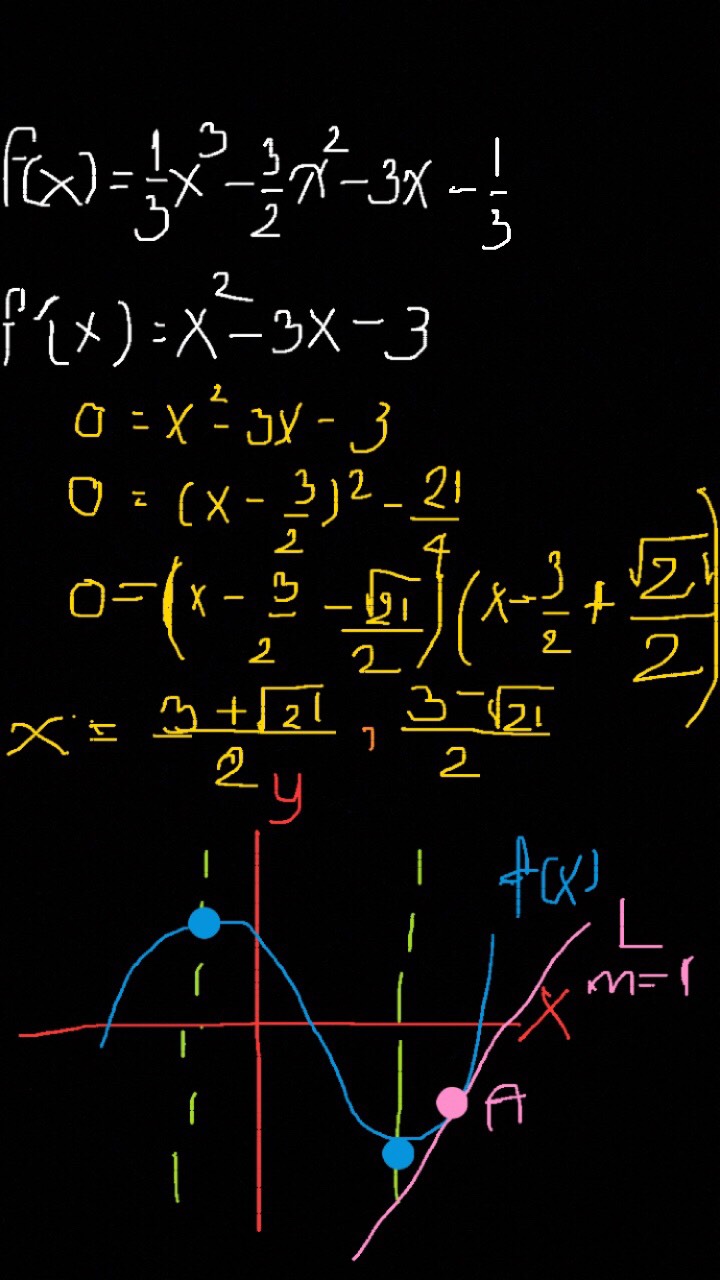 f(x) = 1/3 x³ - 3/2 x² - 3x - 1/3
f'(x) = x² - 3x - 3
0 = x² - 3x - 3
0 = (x - 3/2)² - 21/4
0 = (x - 3/2 - √21/2)(x - 3/2 + √21/2)
x = (3 + √21)/2 , (3 - √21)/2
y
f(x)
L
m = 1
X
A